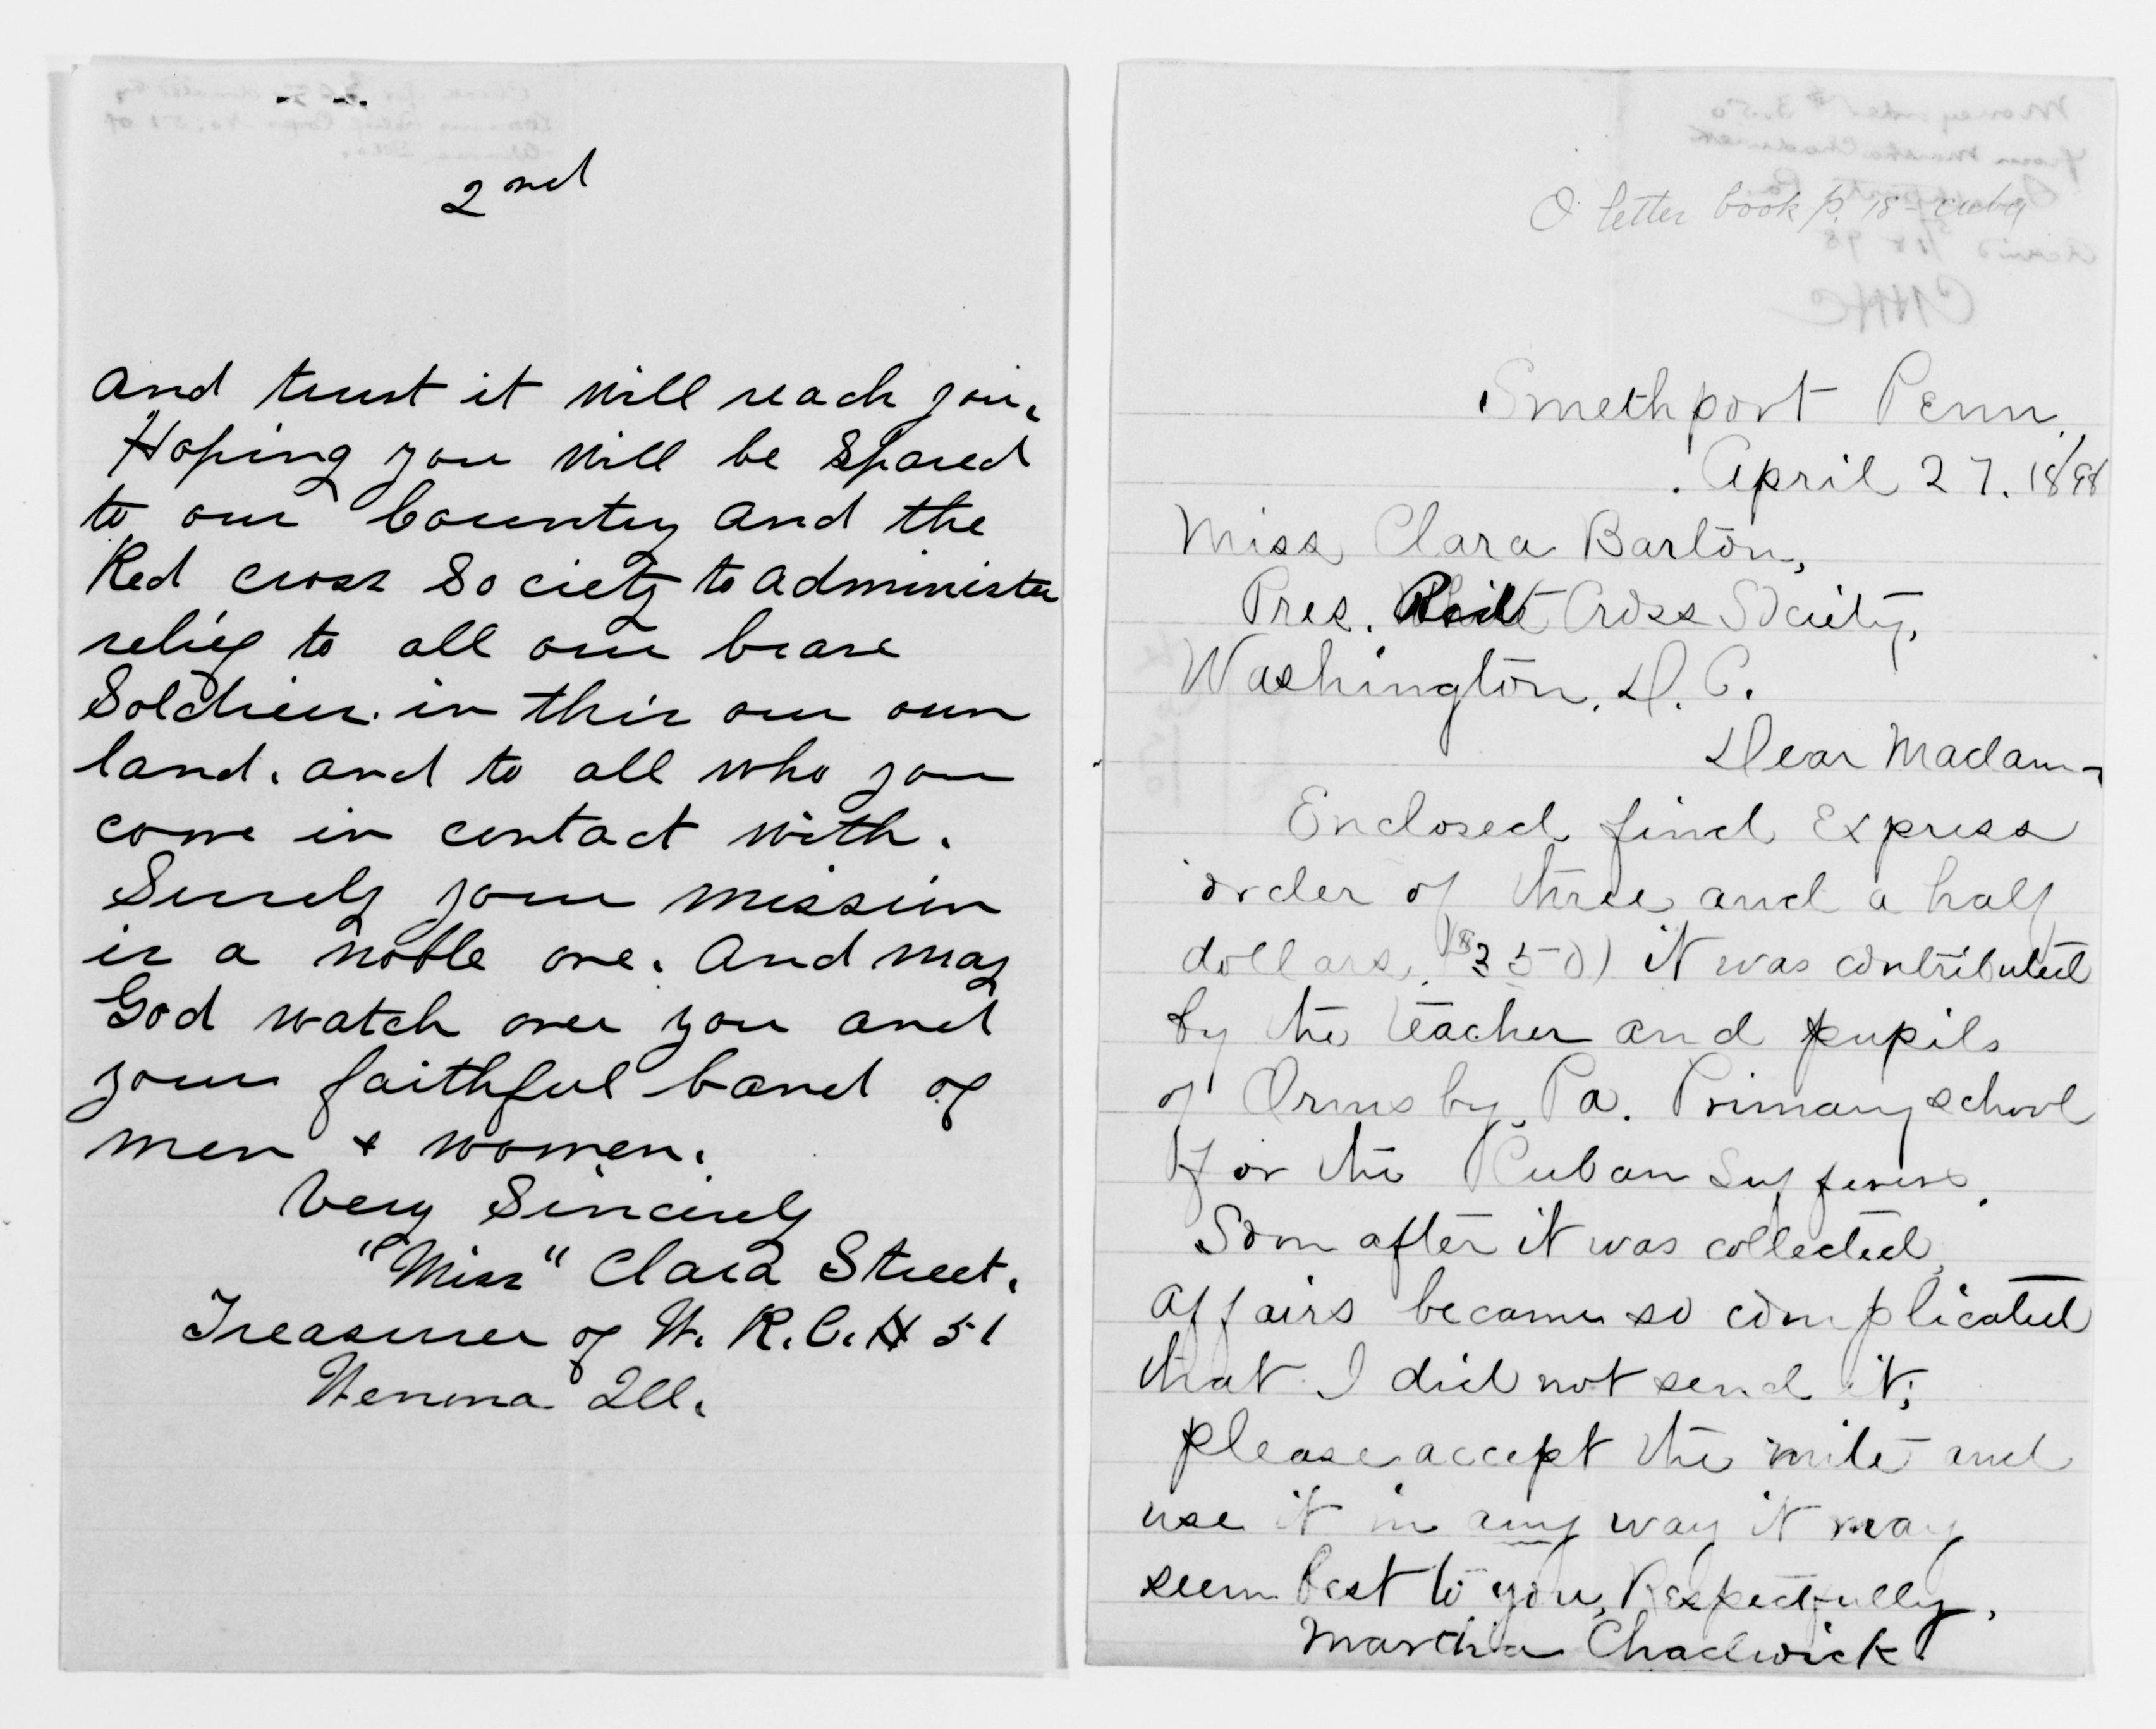 2nd
And trust it will reach you.
Hoping you will be spared
to our Country and the
Red cross Society to administer
relief to all our brave
Soldiers in this our own
land. and to all who you
come in contact with.
Surely your mission
is a noble one. And may
God watch over you and
your faithful band of
men & women.
Very Sincerely
"Miss" Clara Street.
Treasurer of W. R. C. # 51
Wenona Ill.
letter book p. 18 - cuba
Smethport Penn.
April 27. 1898
Miss Clara Barton,
Pres. Red Cross Society,
Washington, D. C.
Dear Madam-
Enclosed find Express
order of three and a half
dollars, ($3 50) it was contributed
by the teacher and pupils
of Ormsby, Pa. Primary school
for the Cuban Sufferers.
Soon after it was collected,
affairs became so complicated
that I did not send it;
please accept the mite and
use it in any way it may
seem best to you, Respectfully,
Martha Chadwick.